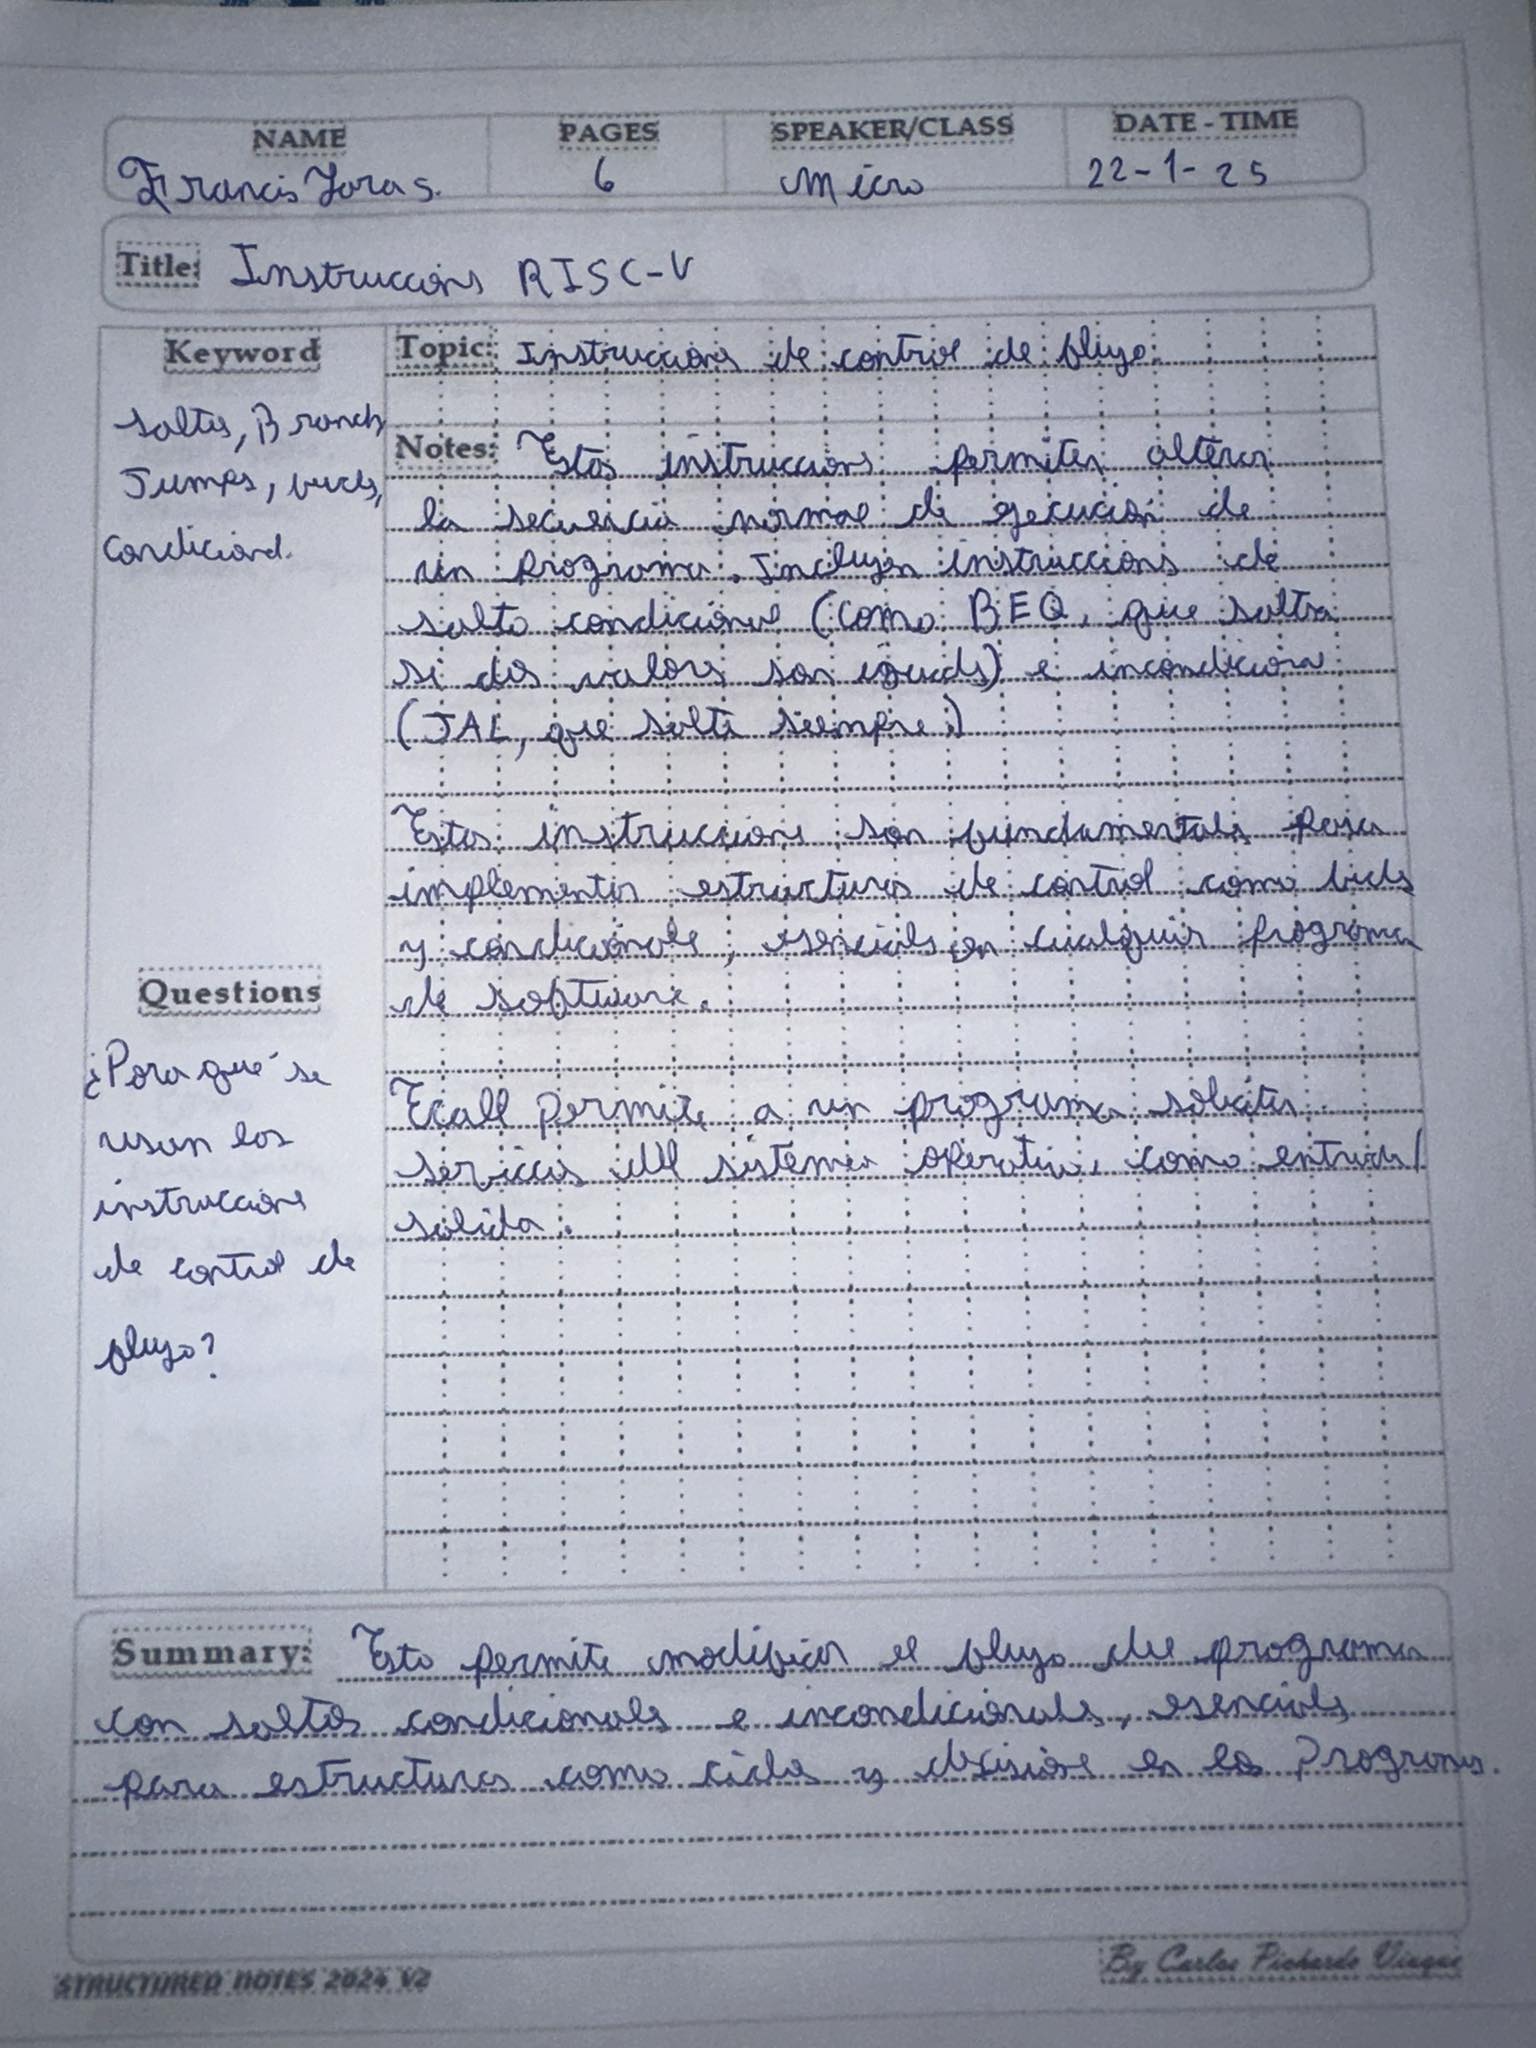 NAME
PAGES
SPEAKER/CLASS
DATE - TIME
Francis
6
Micro
22-1-25
Title: Instruccions RISC-V
Keyword
Saltos, Branch
Jumps, bucls,
Condicional.
Topic: Instruccions de control de flujo.
Notes: Estas instruccions permiten alterar
la secuencia normal de ejecución de
un programa. Incluyen instruccions de
salto condicional (como BEQ, que salta
si dos valors son iguals) e incondicional
(JAL, que salta siempre.)
Estas instruccions son fundamentals para
implementar estructuras de control como bucls
y condicionals, esencials en cualquier programa
de software.
Questions
¿Para qué se
usan las
instruccions
de control de
flujo?
Ecall permite a un programa solicitar
servicios del sistema operativo, como entrada/
salida.
Summary: Esto permite modificar el flujo del programa
con saltos condicionals e incondicionals, esencials
para estructuras como ciclos y decisions en los Programas.
STRUCTURED NOTES 2024 V2
By Carlos Pichardo Viuque